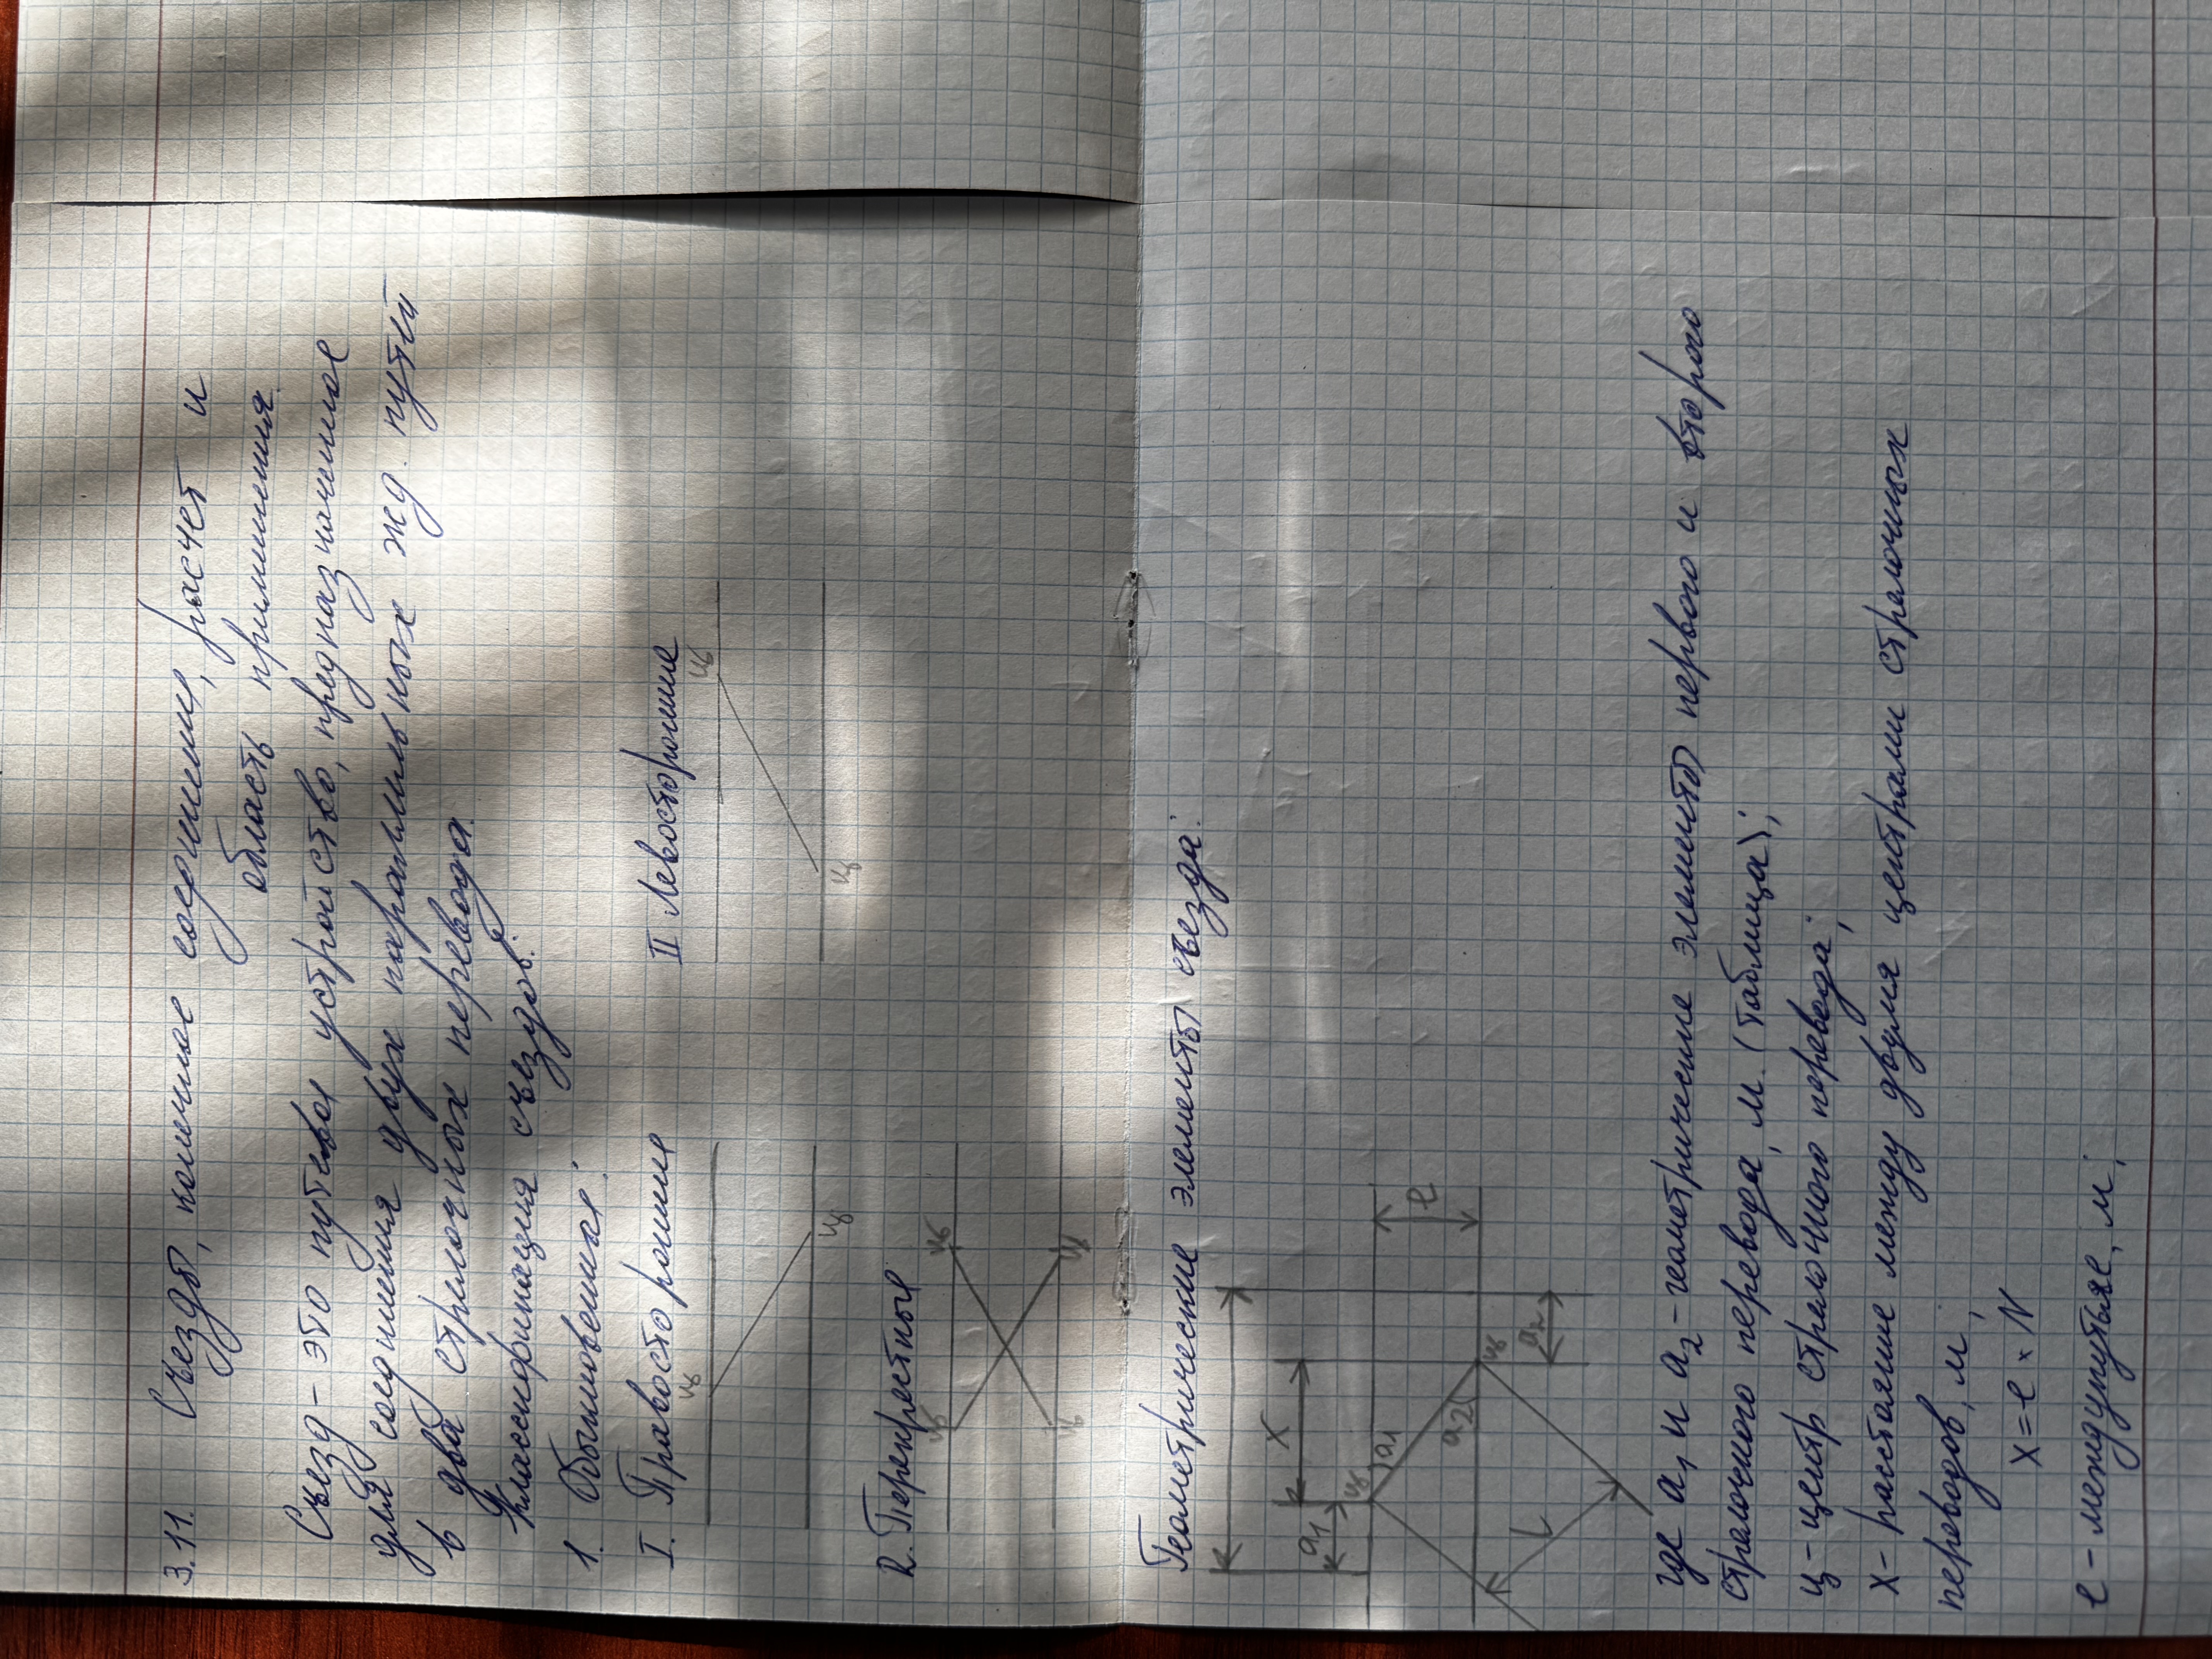 3.11. Съезды, конечное соединение, расчет и
область применения.
Съезд - это путевое устройство, предназначенное
для соединения двух параллельных жд. путей
в два стрелочных перевода.
Классификация съездов:
1. Обыкновенные:
I. Правосторонние
II Левосторонние
ц
ц
ц
ц
2. Перекрестные
ц
ц
ц
ц
Геометрические элементы съезда:
a1
x
ц
a1
a2
ц
e
L
где a₁ и a₂ - геометрические элементы первого и второго
стрелочного перевода, м. (таблица);
ц - центр стрелочного перевода;
x - расстояние между двумя центрами стрелочных
переводов, м;
x = e × N
e - междупутье, м;